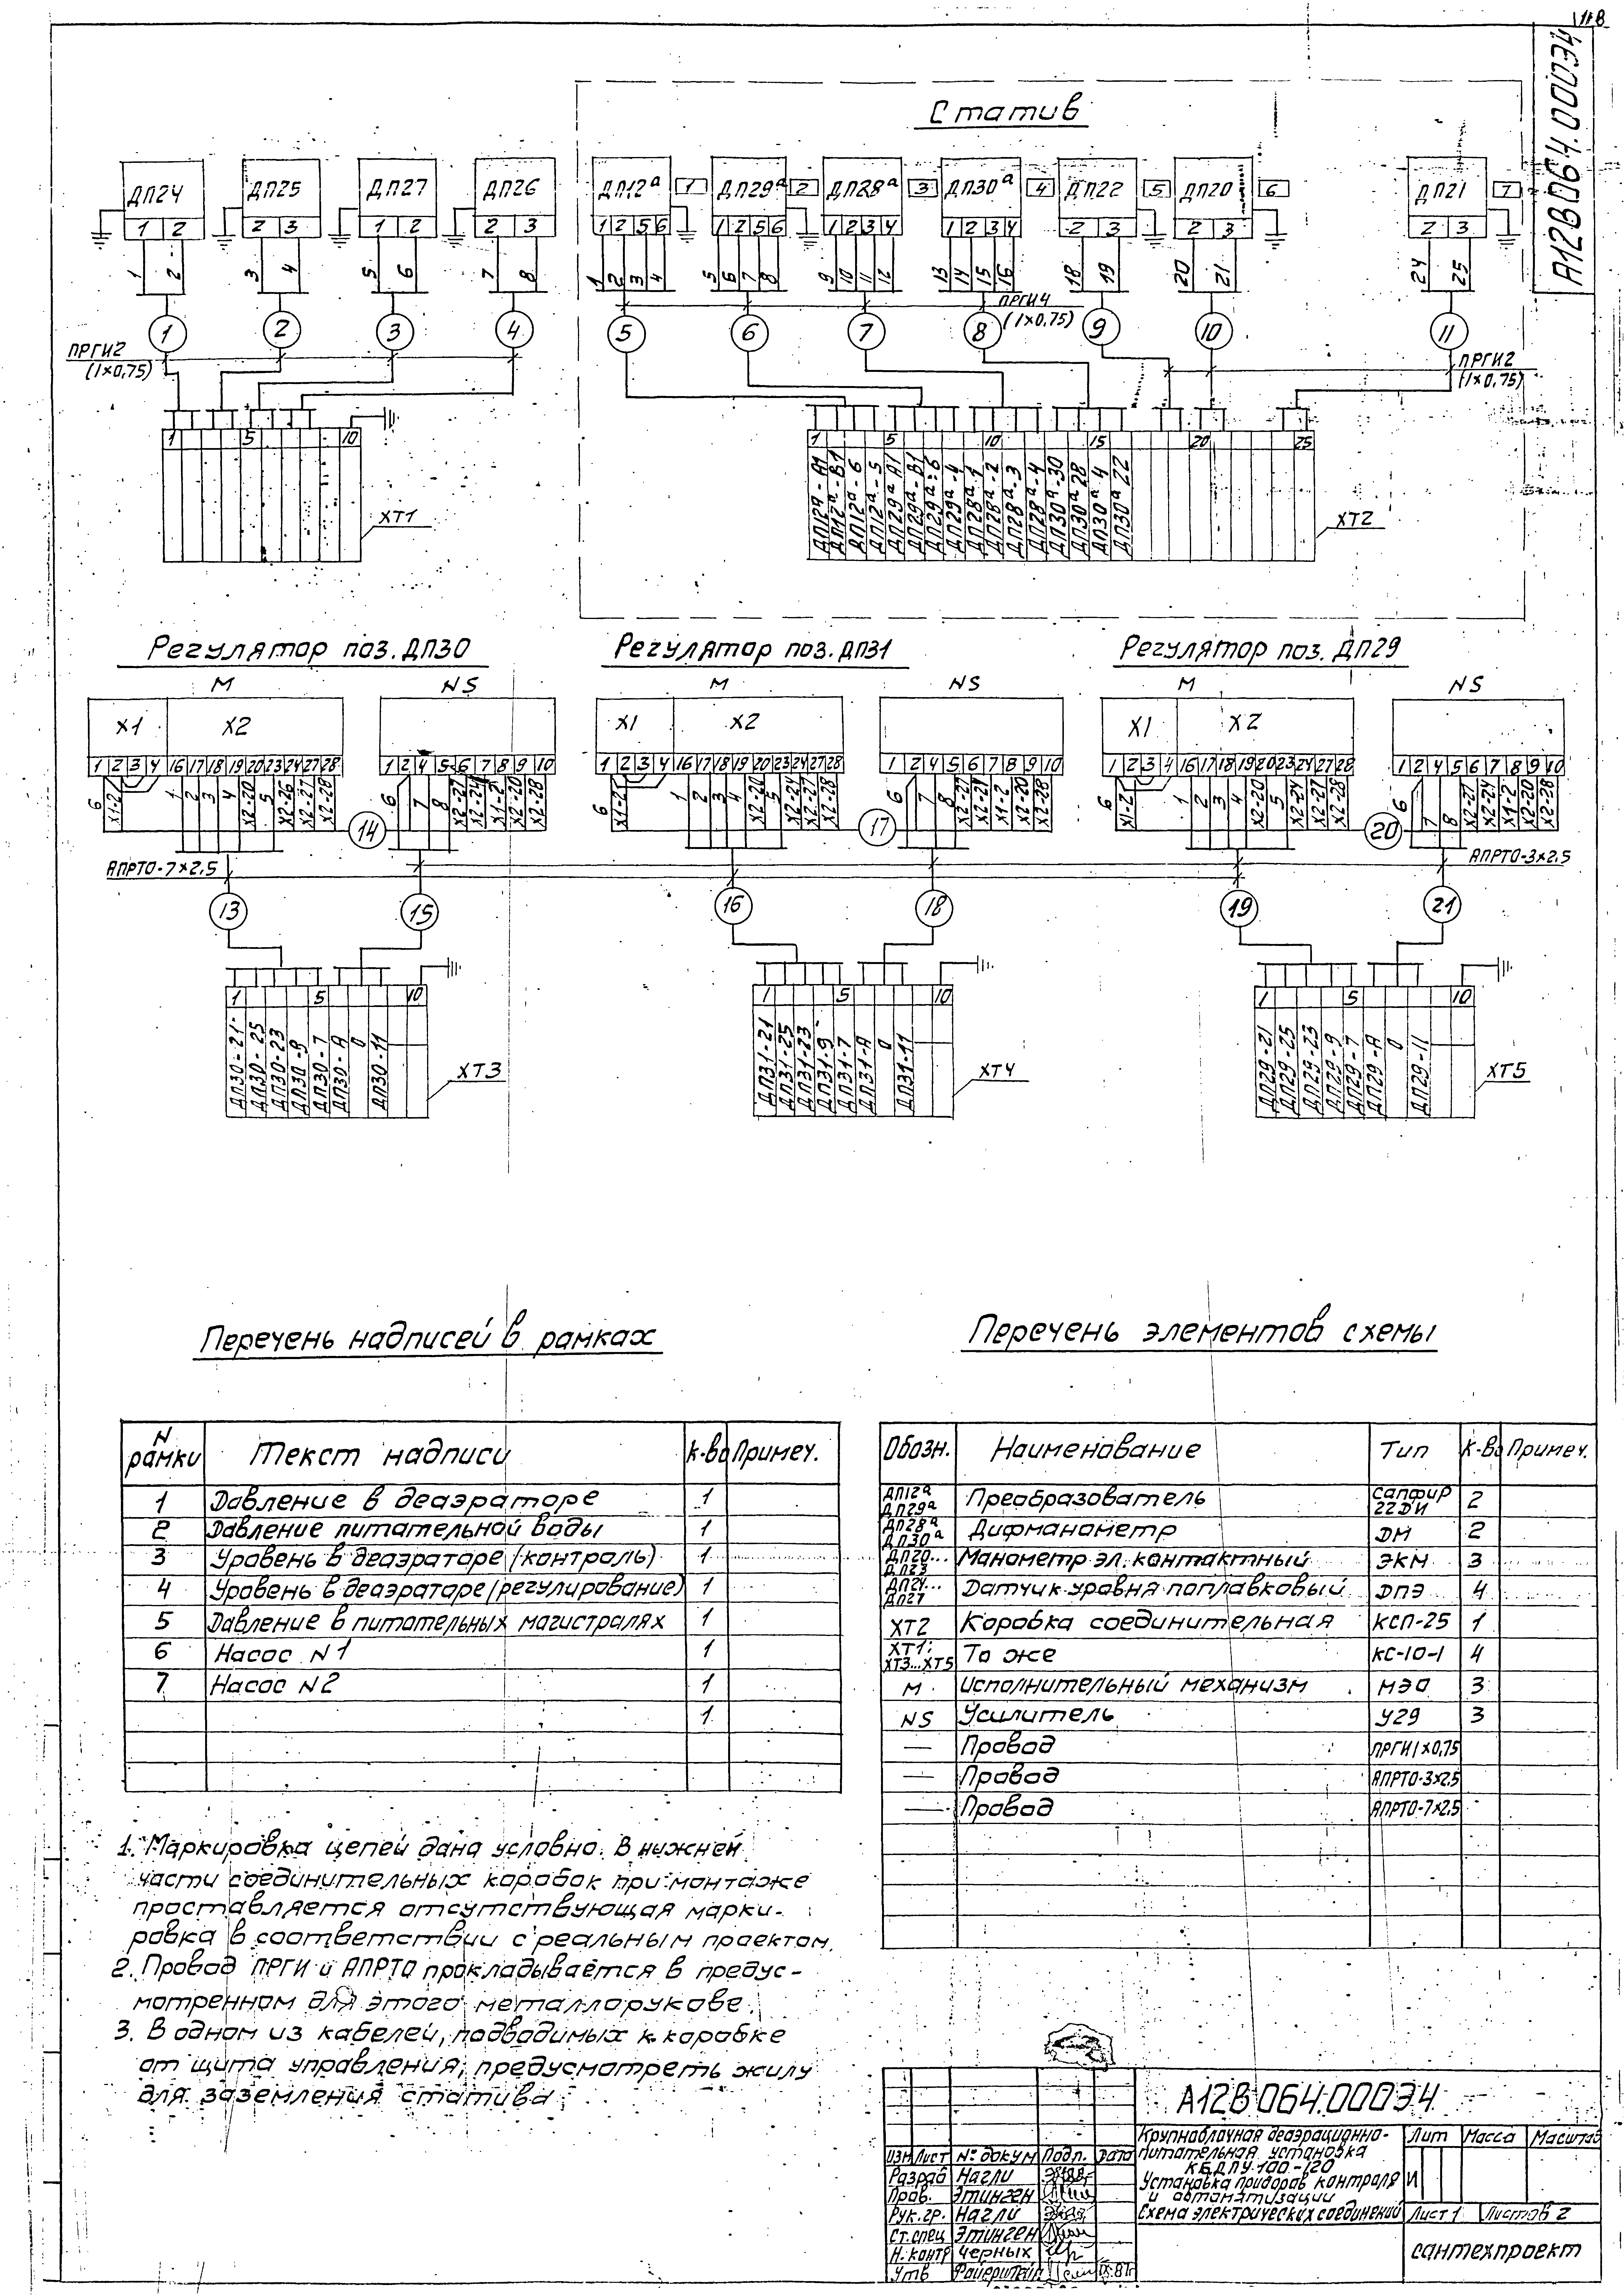 118
А12В064.00ОЭ4
Статив
ДП24 ДП25 ДП27 ДП26 ДП12а 1 ДП29а 2 ДП28а 3 ДП30а 4 ДП22 5 ДП20 6 ДП21 7
1 2 2 3 1 2 2 3 1 2 5 6 1 2 5 6 1 2 3 4 1 2 3 4 2 3 2 3 2 3
1 2 3 4 5 6 7 8 1 2 3 4 5 6 7 8 9 10 11 12 13 14 15 16 18 19 20 21 24 25
ПРГИ4
(1×0,75)
1 2 3 4 5 6 7 8 9 10 11
ПРГИ2
(1×0,75)
ПРГИ2
(1×0,75)
1 5 10
1 5 10 15 20 25
ДП12а-А1 ДП12а-В1 ДП12а-6 ДП12а-5 ДП29а-А1 ДП29а-В1 ДП29а-6 ДП29а-4 ДП28а-1 ДП28а-2 ДП28а-3 ДП28а-4 ДП30а-30 ДП30а 28 ДП30а-4 ДП30а 22
ХТ1
ХТ2
Регулятор поз. ДП30 Регулятор поз. ДП31 Регулятор поз. ДП29
М NS М NS М NS
Х1 Х2 Х1 Х2 Х1 Х2
1 2 3 4 16 17 18 19 20 23 24 27 28 1 2 4 5 6 7 8 9 10
1 2 3 4 16 17 18 19 20 23 24 27 28 1 2 4 5 6 7 8 9 10
1 2 3 4 16 17 18 19 20 23 24 27 28 1 2 4 5 6 7 8 9 10
6 Х1-2 1 2 3 4 Х2-20 5 Х2-26 Х2-27 Х2-28 6 7 8 Х2-27 Х2-24 Х1-2 Х2-20 Х2-28
6 Х1-2 1 2 3 4 Х2-20 5 Х2-24 Х2-27 Х2-28 6 7 8 Х2-27 Х2-24 Х1-2 Х2-20 Х2-28
6 Х1-2 1 2 3 4 Х2-20 5 Х2-24 Х2-27 Х2-28 6 7 8 Х2-27 Х2-24 Х1-2 Х2-20 Х2-28
14 17 20
АПРТО-7×2,5 АПРТО-3×2,5
13 15 16 18 19 21
1 5 10 1 5 10 1 5 10
ДП30-21 ДП30-25 ДП30-23 ДП30-9 ДП30-7 ДП30-А 0 ДП30-11
ХТ3
ДП31-21 ДП31-25 ДП31-23 ДП31-9 ДП31-7 ДП31-А 0 ДП31-11
ХТ4
ДП29-21 ДП29-25 ДП29-23 ДП29-9 ДП29-7 ДП29-А 0 ДП29-11
ХТ5
Перечень надписей в рамках
N рамки Текст надписи К-во Примеч.
1 Давление в деаэраторе 1
2 Давление питательной воды 1
3 Уровень в деаэраторе (контроль) 1
4 Уровень в деаэраторе (регулирование) 1
5 Давление в питательных магистралях 1
6 Насос N1 1
7 Насос N2 1
1
Перечень элементов схемы
Обозн. Наименование Тип К-во Примеч.
ДП12а ДП29а Преобразователь Сапфир 22ДИ 2
ДП28а ДП30а Дифманометр ДМ 2
ДП20... ДП23 Манометр эл. контактный ЭКМ 3
ДП24... ДП27 Датчик уровня поплавковый ДПЭ 4
ХТ2 Коробка соединительная КСП-25 1
ХТ1; ХТ3...ХТ5 То же КС-10-1 4
М Исполнительный механизм МЭО 3
NS Усилитель У29 3
— Провод ПРГИ1×0,75
— Провод АПРТО-3×2,5
— Провод АПРТО-7×2,5
1. Маркировка цепей дана условно. В нижней
части соединительных коробок при монтаже
проставляется отсутствующая марки-
ровка в соответствии с реальным проектом.
2. Провод ПРГИ и АПРТО прокладывается в предус-
мотренном для этого металлорукове.
3. В одном из кабелей, подводимых к коробке
от щита управления, предусмотреть жилу
для заземления статива
А12В064.00ОЭ4
Крупноблочная деаэрационно-
питательная установка
КБДПУ.100-120
Установка приборов контроля
и автоматизации
Схема электрических соединений
Лит Масса Масштаб
И
Лист 1 Листов 2
сантехпроект
Изм Лист № докум Подп. Дата
Разраб Нагли
Пров. Этинген
Рук.гр. Нагли
Ст.спец Этинген
Н.контр Черных
Утв Файерштейн